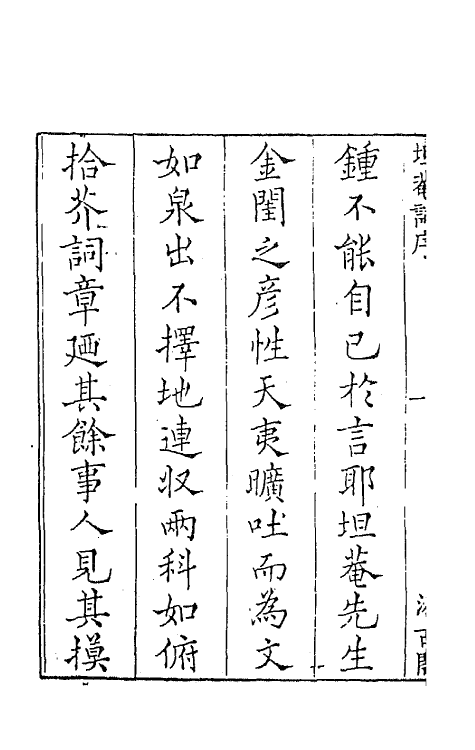 坦菴詞序
一
汲古閣
鍾不能自已於言耶坦菴先生
金閨之彦性天夷曠吐而為文
如泉出不擇地連収兩科如俯
拾芥詞章廼其餘事人見其摸